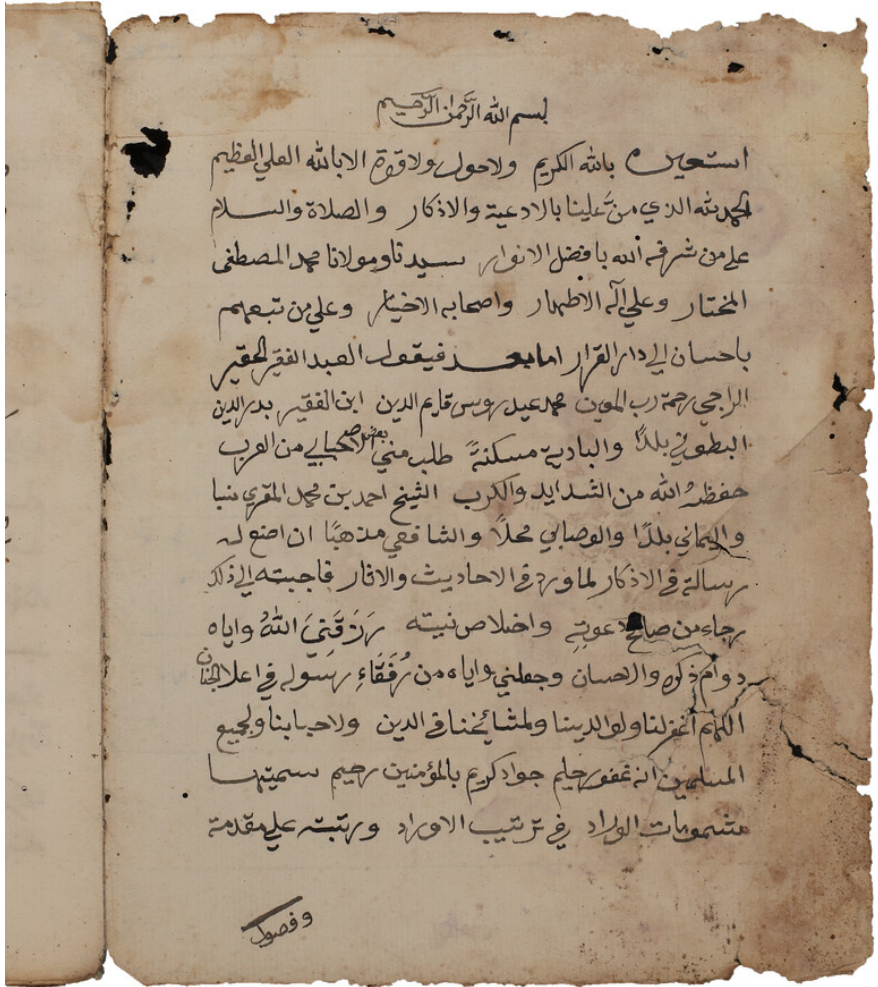 بسم الله الرَّحمٰن الرَّحيم
استعين بالله الكريم ولاحول ولاقوة الابالله العلي العظيم
الحمدلله الذي منَّ علينا بالادعية والاذكار والصلاة والسلام
على من شرفه الله بافضل الانوار سيدنا ومولانا محمد المصطفى
المختار وعلي آله الاطهار واصحابه الاخيار وعلي من تبعهم
باحسان الي دار القرار امابعد فيقول العبد الفقير الحقير
الراجي رحمة رب المعين محمد عيدروس قايم الدين ابن الفقير بدر الدين
البطوني بلدًا والبادية مسكنةً طلب مني بعض الاصحابي من العرب
حفظهُ الله من الشدايد والكرب الشيخ احمد بن محمد المقري نسبا
واليماني بلدًا والوصابي محلًا والشافعي مذهبًا ان اضع له
رسالة في الاذكار لما ورد في الاحاديث والاثار فاجبته الي ذلك
رجاء من صالح دعوتِهِ واخلاص نيته رَزَقَنِيَ اللهُ واياه
دوام ذكره والاحسان وجعلني واياه من رُفَقَاءِ رسوله في اعلا الجنان
اللهم اغفر لنا ولوالدينا ولمشائخنا في الدين ولاحبابنا ولجميع
المسلمين انه غفور حليم جواد كريم بالمؤمنين رحيم سميتها
مشمومات الوراد في ترتيب الاوراد ورتبته علي مقدمة
وفصول